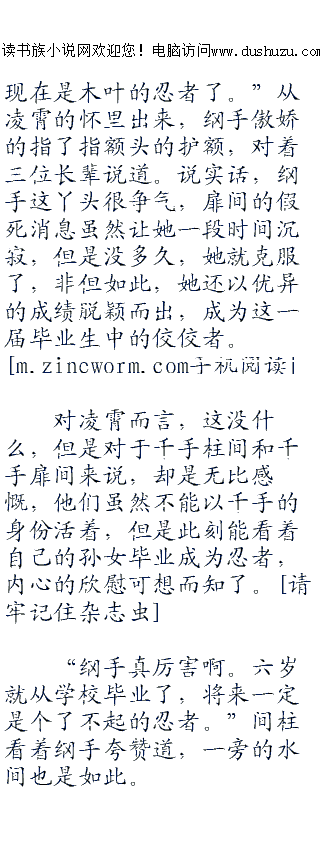 读书族小说网欢迎您！电脑访问www.dushuzu.com
现在是木叶的忍者了。”从
凌霄的怀里出来，纲手傲娇
的指了指额头的护额，对着
三位长辈说道。说实话，纲
手这丫头很争气，扉间的假
死消息虽然让她一段时间沉
寂，但是没多久，她就克服
了，非但如此，她还以优异
的成绩脱颖而出，成为这一
届毕业生中的佼佼者。
[m.zincworm.com手机阅读
对凌霄而言，这没什
么，但是对于千手柱间和千
手扉间来说，却是无比感
慨，他们虽然不能以千手的
身份活着，但是此刻能看着
自己的孙女毕业成为忍者，
内心的欣慰可想而知了。[请
牢记住杂志虫]
“纲手真厉害啊。六岁
就从学校毕业了，将来一定
是个了不起的忍者。”间柱
看着纲手夸赞道，一旁的水
间也是如此。